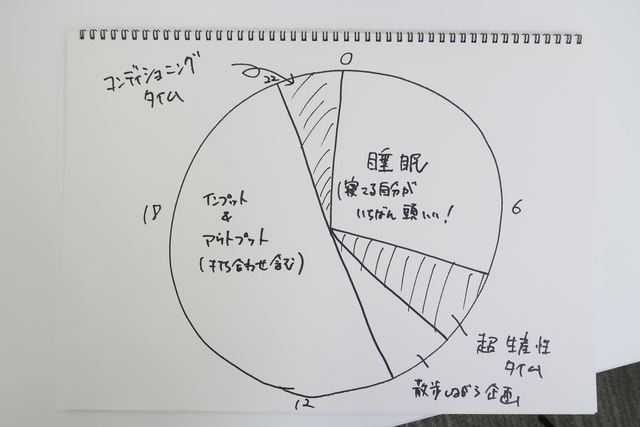 0
コンディショニング
タイム
22
睡眠
(寝てる自分が
いちばん頭いい!
6
18
インプット
&
アウトプット
(打ち合わせ含む)
超生産性
タイム
散歩しながら企画
12